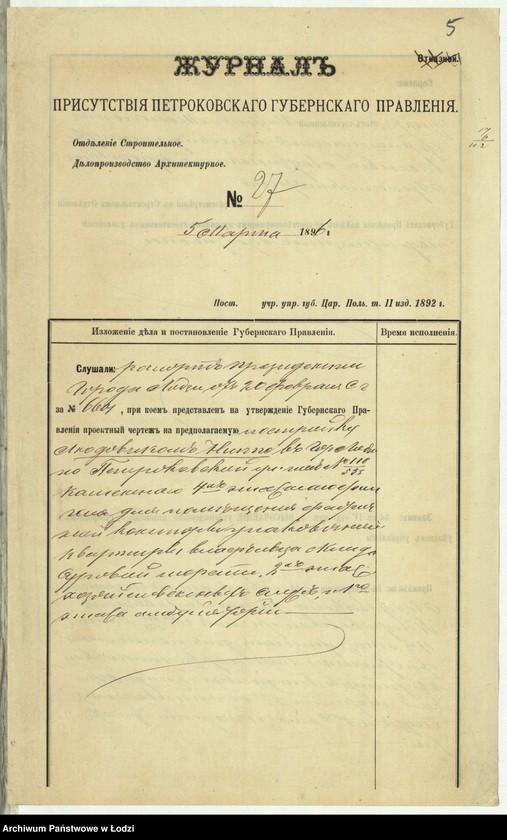 5
Отказной.
ЖУРНАЛЪ
ПРИСУТСТВІЯ ПЕТРОКОВСКАГО ГУБЕРНСКАГО ПРАВЛЕНІЯ.
Отдѣленіе Строительное.
Дѣлопроизводство Архитектурное.
№ 27
5 Марта 1896 г
Пост. учр. упр. губ. Цар. Поль. т. II изд. 1892 г.
Изложеніе дѣла и постановленіе Губернскаго Правленія.
Время исполненія.
Слушали: рапортъ Президента
города Лодзи отъ 20 февраля с г
за № , при коемъ представленъ на утвержденіе Губернскаго Пра-
вленія проектный чертежъ на предполагаемую постройку
Людовикомъ въ гор. Лодзи
по Петроковской ул. подъ №
каменнаго этажнаго
для помѣщенія фабрич
ной конторы, упаковочной
квартиры владѣльца и склада
суровой шерсти, 2хъ этаж
хозяйственныхъ и 1го
этажа
Archiwum Państwowe w Łodzi